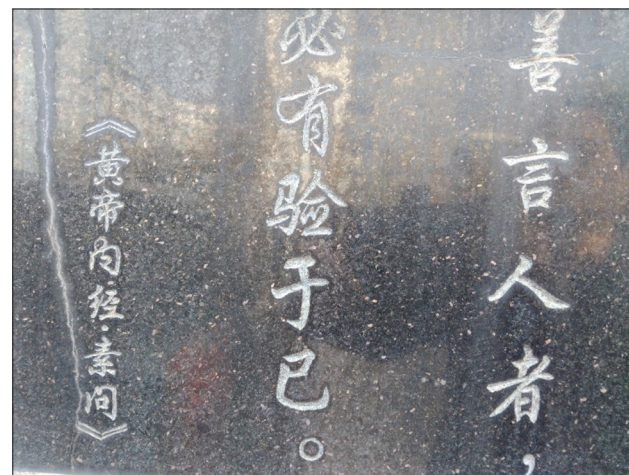 善言人者，
必有验于已。
《黄帝内经·素问》